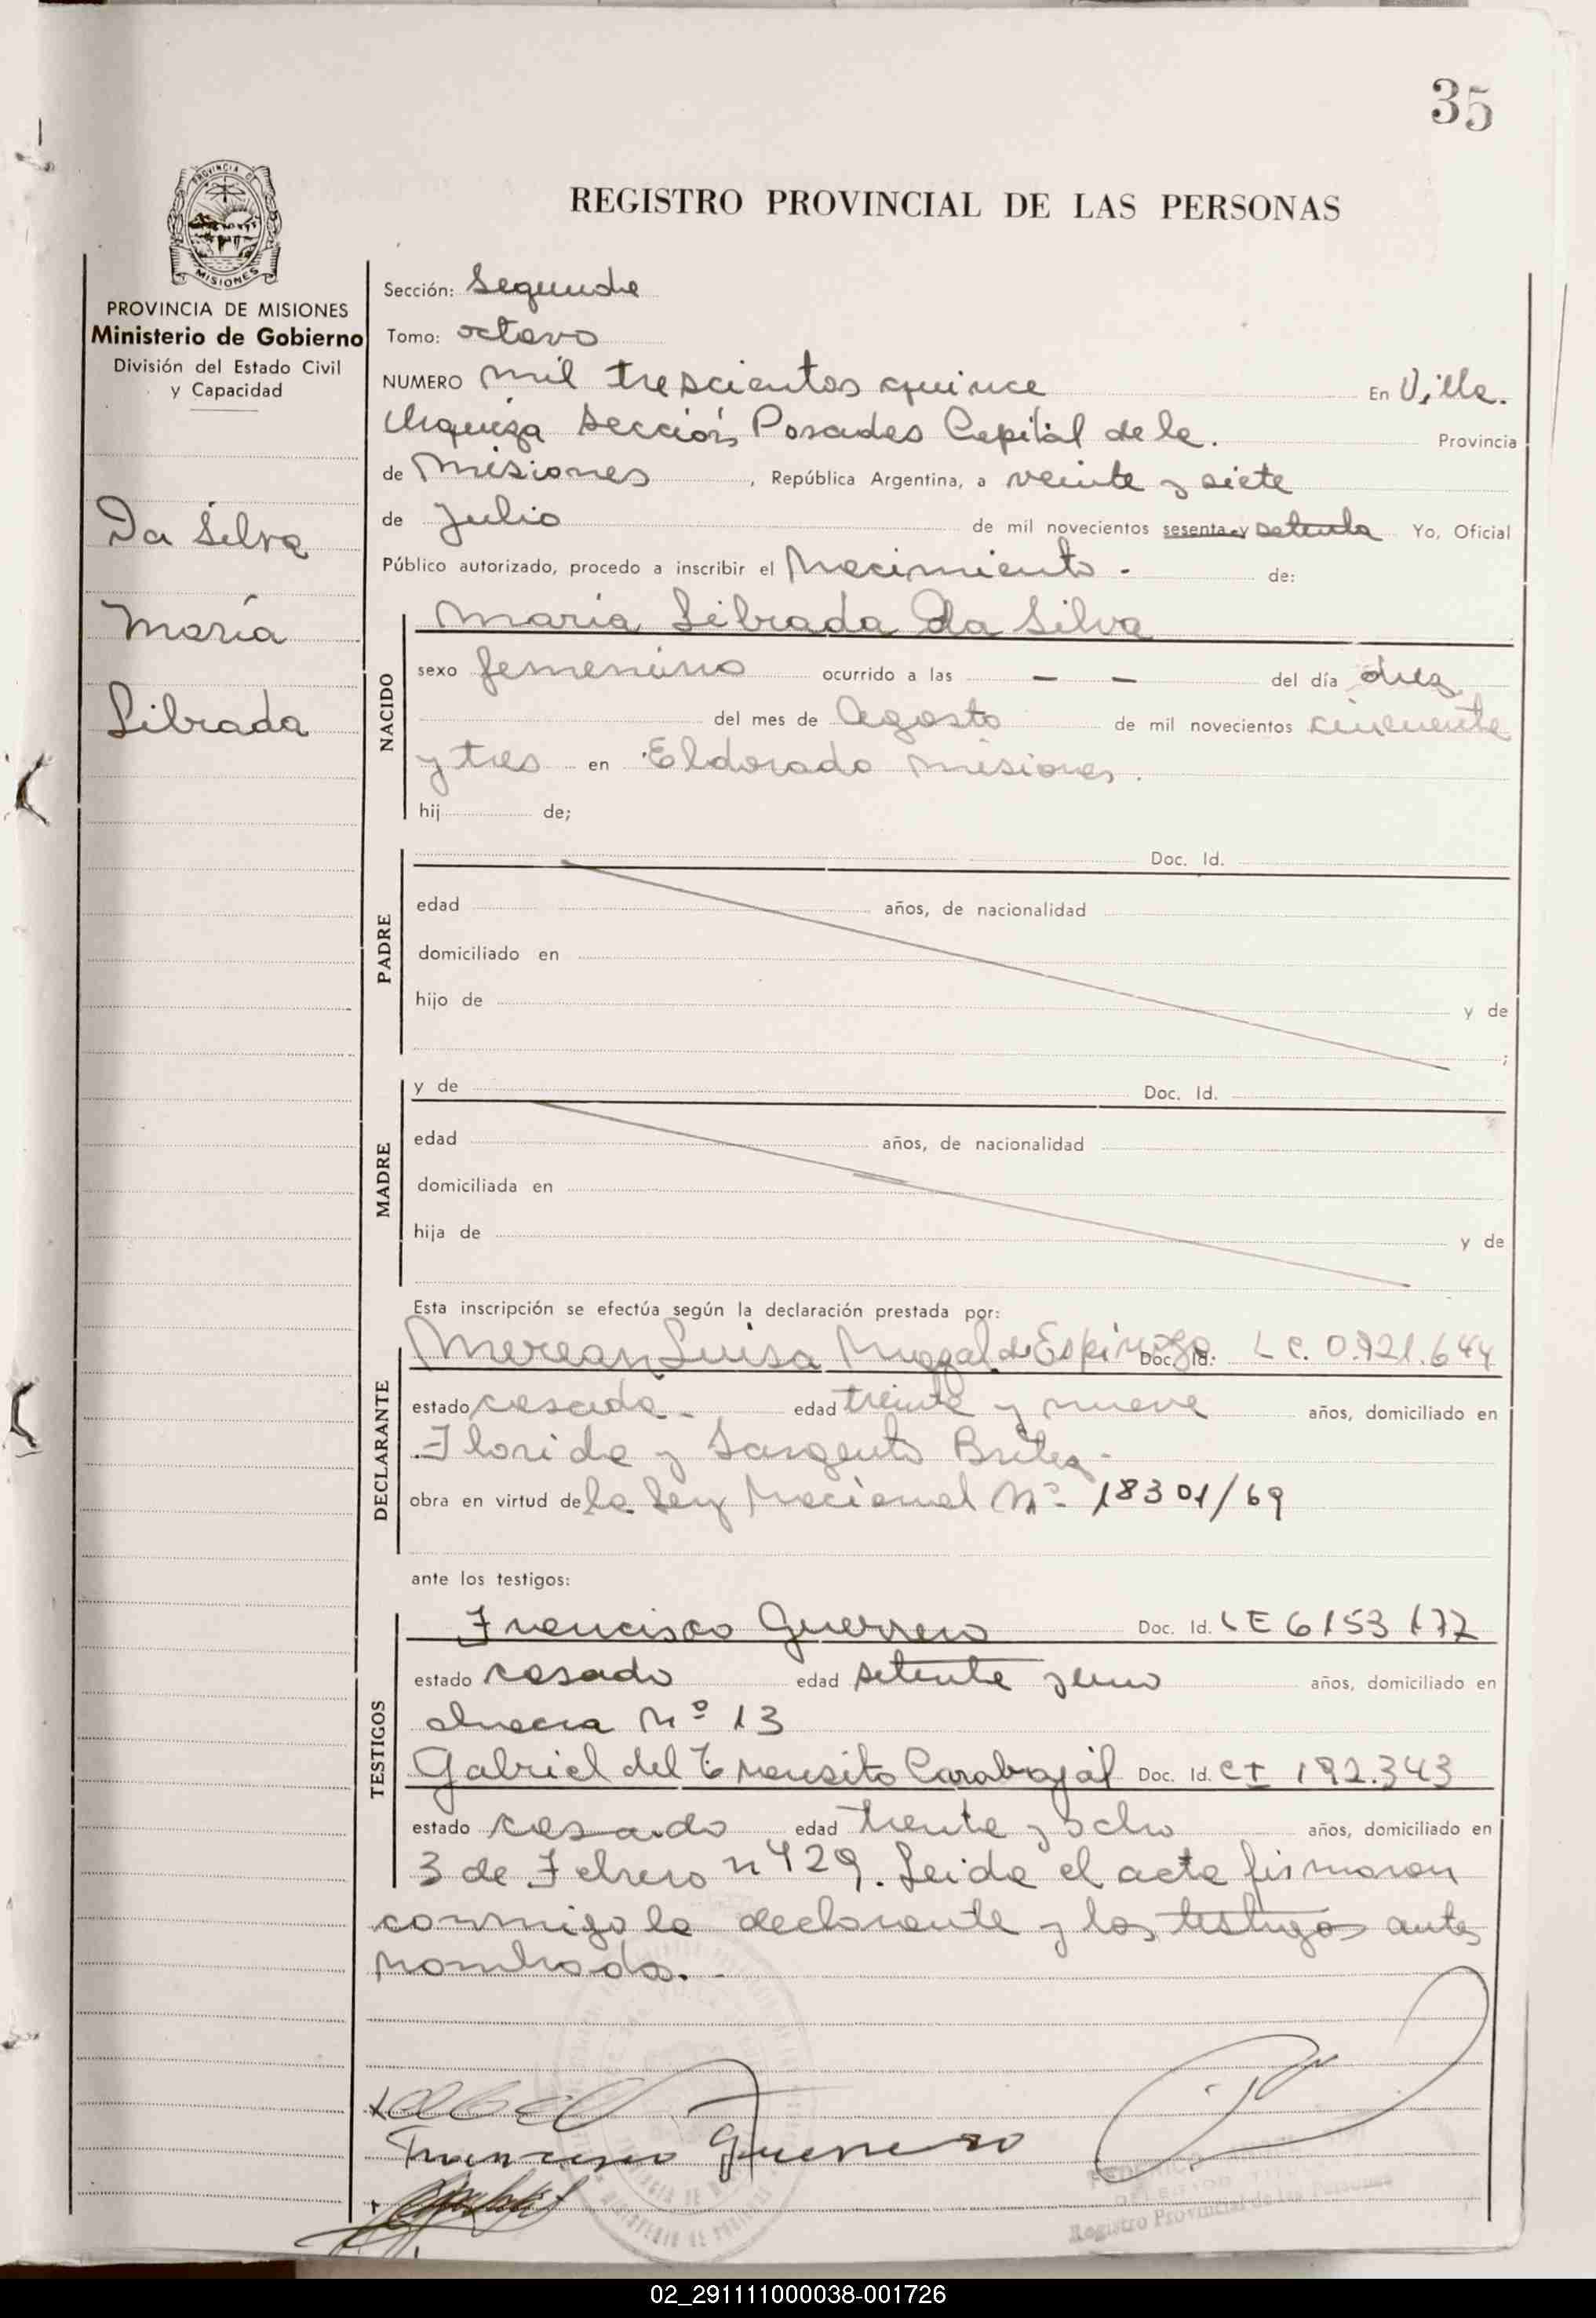 35
PROVINCIA DE
MISIONES
REGISTRO PROVINCIAL DE LAS PERSONAS
PROVINCIA DE MISIONES
Ministerio de Gobierno
División del Estado Civil
y Capacidad
Da Silva
María
Librada
Sección: Segunda
Tomo: octavo
NUMERO mil trescientos quince En Villa.
Urquiza Sección Posadas Capital de la. Provincia
de Misiones, República Argentina, a veinte y siete
de Julio de mil novecientos sesenta y setenta Yo, Oficial
Público autorizado, procedo a inscribir el Nacimiento.- de:
NACIDO
María Librada Da Silva
sexo femenino ocurrido a las — — del día diez
del mes de Agosto de mil novecientos cincuenta
y tres en Eldorado Misiones.
hij de;
PADRE
Doc. Id.
edad años, de nacionalidad
domiciliado en
hijo de y de
;
MADRE
y de Doc. Id.
edad años, de nacionalidad
domiciliada en
hija de y de
Esta inscripción se efectúa según la declaración prestada por:
DECLARANTE
Luisa de Espinoza Doc. Id: L C. 0.921.644
estado casada.- edad treinta y nueve años, domiciliado en
Florida y Sargento Britez-
obra en virtud de la Ley Nacional Nº 18301/69
ante los testigos:
TESTIGOS
Francisco Guerrero Doc. Id. LE 6153177
estado casado edad setenta y uno años, domiciliado en
chacra Nº 13
Gabriel del Transito Carabajal Doc. Id. CI 192.343
estado casado edad treinta y ocho años, domiciliado en
3 de Febrero n 429. Leida el acta firmaron
conmigo la declarante y los testigos antes
nombrados.-
Francisco Guerrero
Registro Provincial de las Personas
02_291111000038-001726